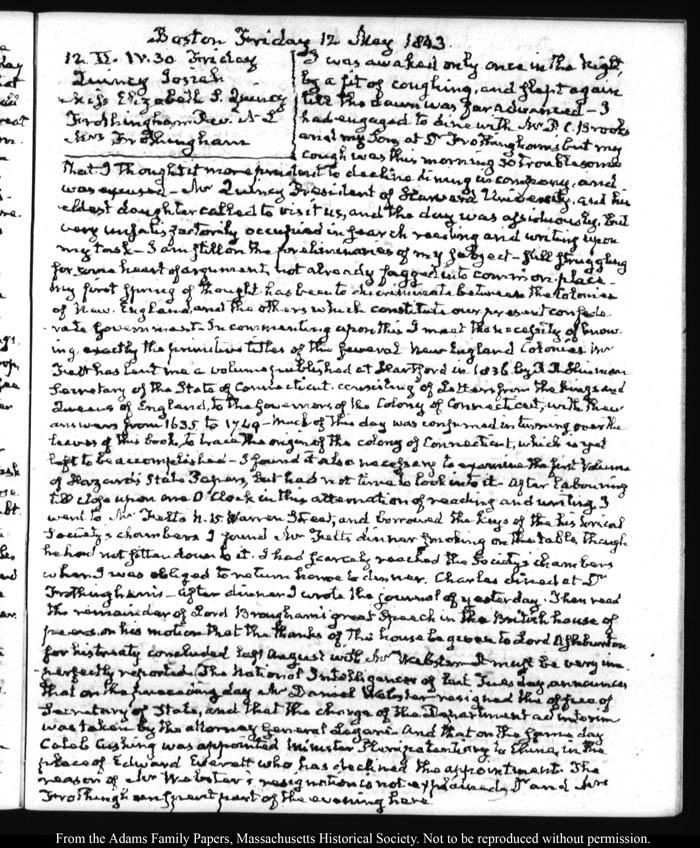 Boston Friday 12. May 1843.
12. V. IV.30. Friday
Quincy Josiah
Miss Elizabeth S. Quincy
Frothingham Rev. N L
Mrs Frothingham
I was awaked only once in the Night,
by a fit of coughing, and slept again
till the dawn was far advanced — I
had engaged to dine with Mr. P. C. Brooks
and my Son, at Dr Frothingham's but my
cough was this morning so troublesome
that I thought it more prudent to decline dining in company, and
was excused — Mr Quincy President of Harvard University, and his
eldest daughter called to visit us, and the day was assiduously, but
very unsatisfactorily occupied in search reading and writing upon
my task — I am still on the preliminaries of my subject — still struggling
for some heart of argument, not already fagged into common-place.
My first spring of thought has been to discriminate between the Colonies
of New England, and the others which constitute our present confede
rate Government — In commenting upon this I meet the necessity of know
ing exactly the primitive titles of the several New England Colonies Mr
Felt has lent me a volume published at Hartford in 1836 by R. R. Hinman
Secretary of the State of Connecticut. consisting of Letters from the Kings and
Queens of England, to the Governors of the Colony of Connecticut, with their
answers from 1635 to 1749 — Much of this day was consumed in turning over the
leaves of this book, to trace the origin of the colony of Connecticut, which is yet
left to be accomplished — I found it also necessary to examine the first Volume
of Hazard's State Papers, but had not time to look into it — After labouring
till close upon one O'Clock in this alternation of reading and writing, I
went to Mr Felt's N. 15. Warren Street, and borrowed the keys of the historical
Society's chambers I found Mr Felt's dinner smoking on the table, though
he had not sitten down to it. I had scarcely reached the Society's chambers
when I was obliged to return home to dinner. Charles dined at Dr
Frothingham's — After dinner I wrote the journal of yesterday. Then read
the remainder of Lord Brougham's great Speech in the British house of
peers, on his motion that the thanks of the house be given to Lord Ashburton
for his treaty concluded last August with Mr Webster — It must be very im
perfectly reported. The National Intelligencer of last Tuesday, announces
that on the preceding day Mr Daniel Webster resigned the office of
Secretary of State, and that the charge of the Department ad interim
was taken by the Attorney General Legaré. And that on the same day
Caleb Cushing was appointed Minister Plenipotentiary to China, in the
place of Edward Everett who has declined the appointment. The
reason of Mr Webster's resignation is not explained. Dr and Mrs
Frothingham spent part of the evening here.
From the Adams Family Papers, Massachusetts Historical Society. Not to be reproduced without permission.